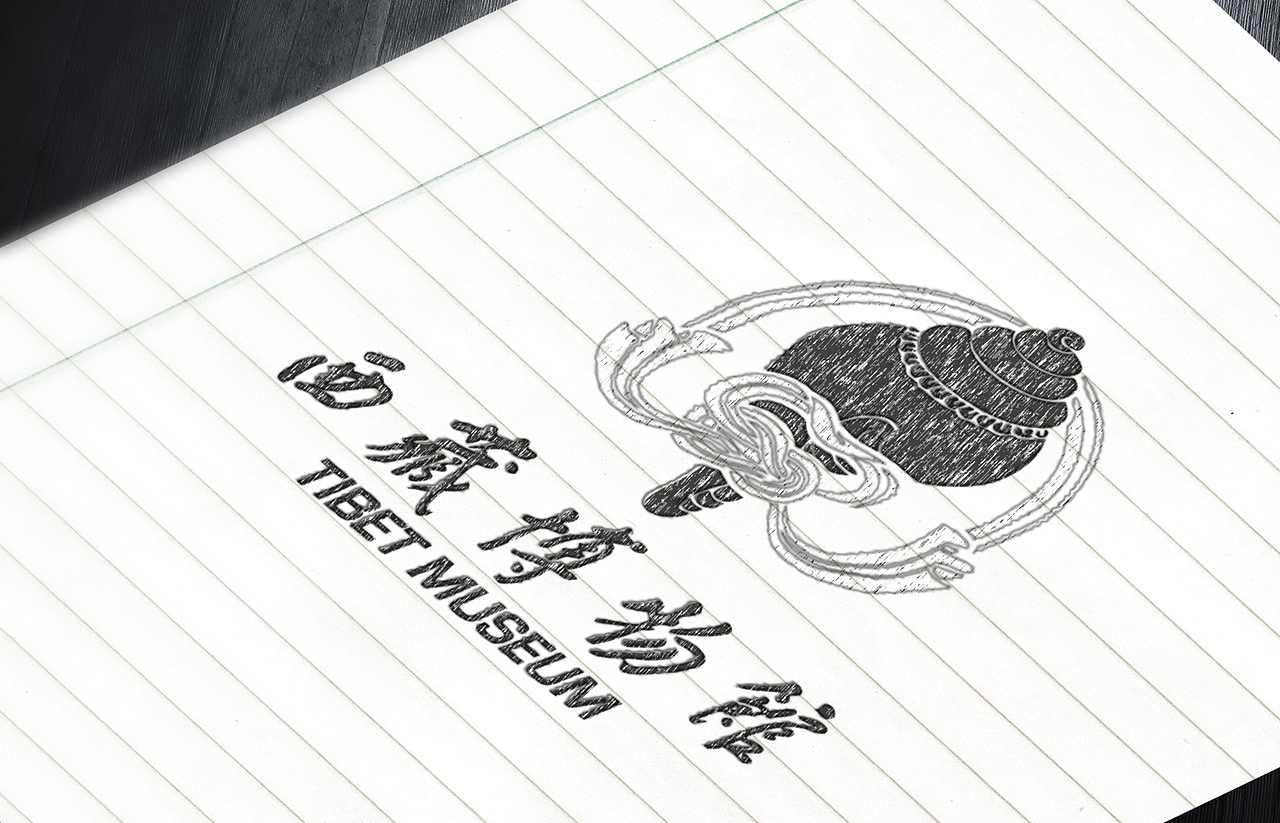 西藏博物馆
TIBET MUSEUM